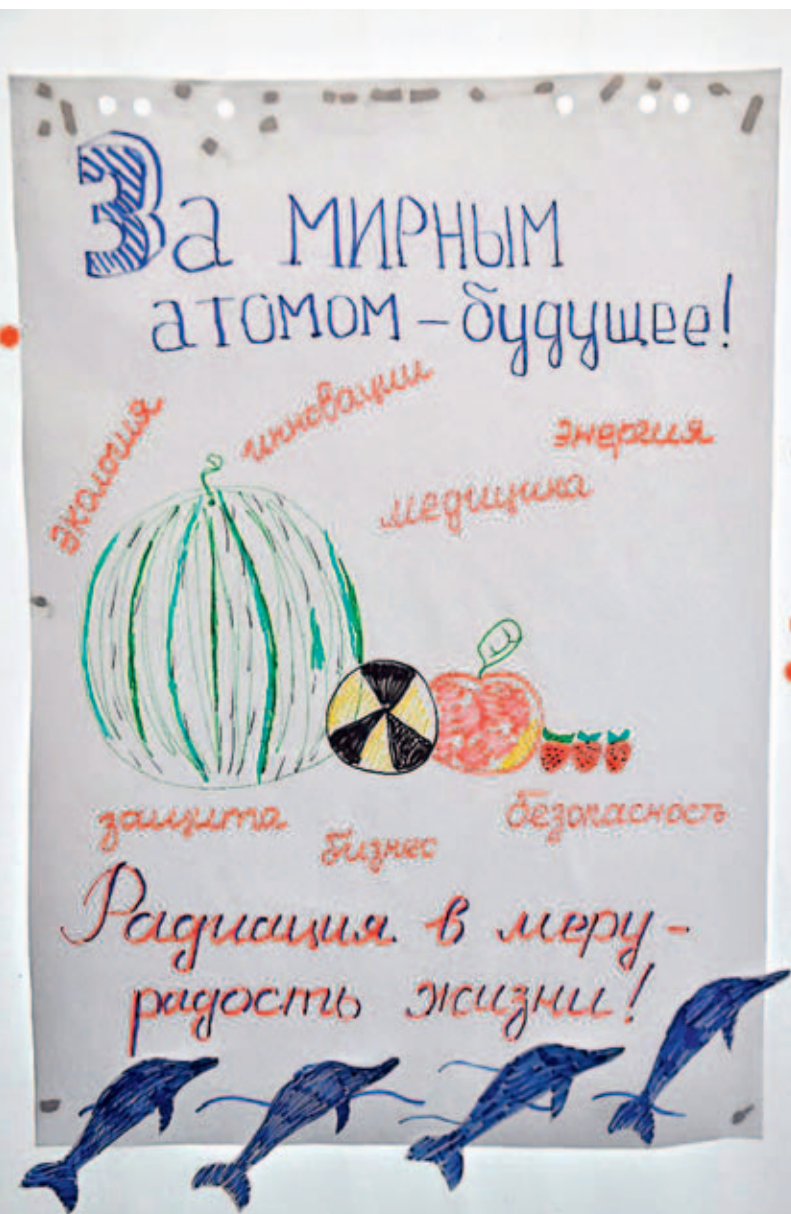 За МИРНЫМ
атомом – будущее!
экология
инновации
энергия
медицина
защита
бизнес
безопасность
Радиация в меру -
радость жизни!